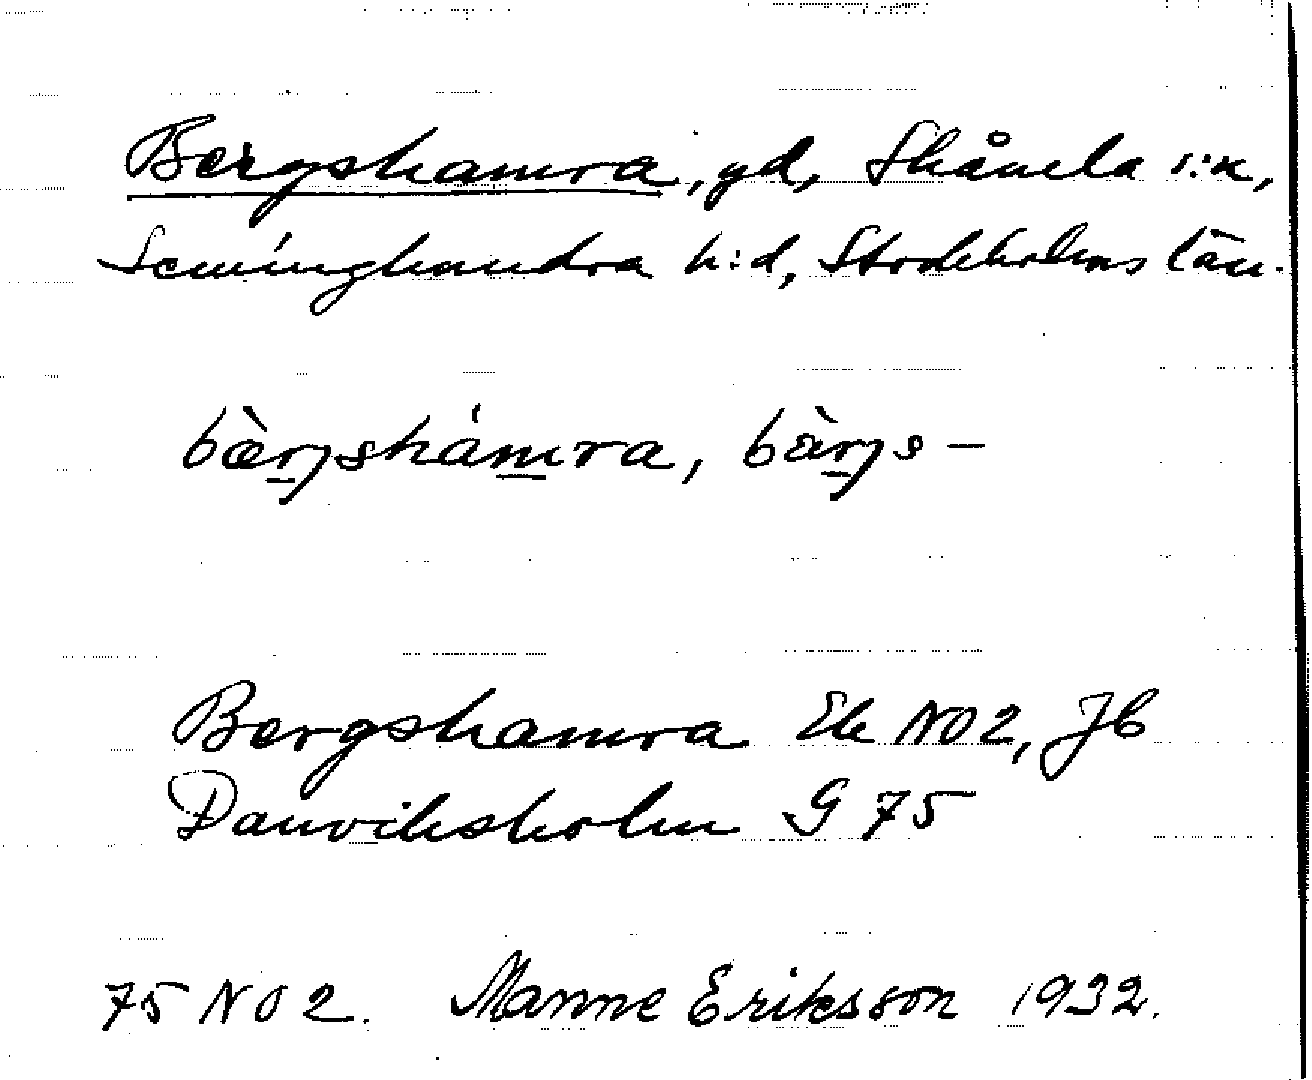 Bergshamra, gd, Skånela s:n,
Seminghundra h:d, Stockholms län.
bæ̀rjshámra, bàrjs-
Bergshamra Ek NO2, Jb
Danviksholm G 75
75 NO2. Manne Eriksson 1932.